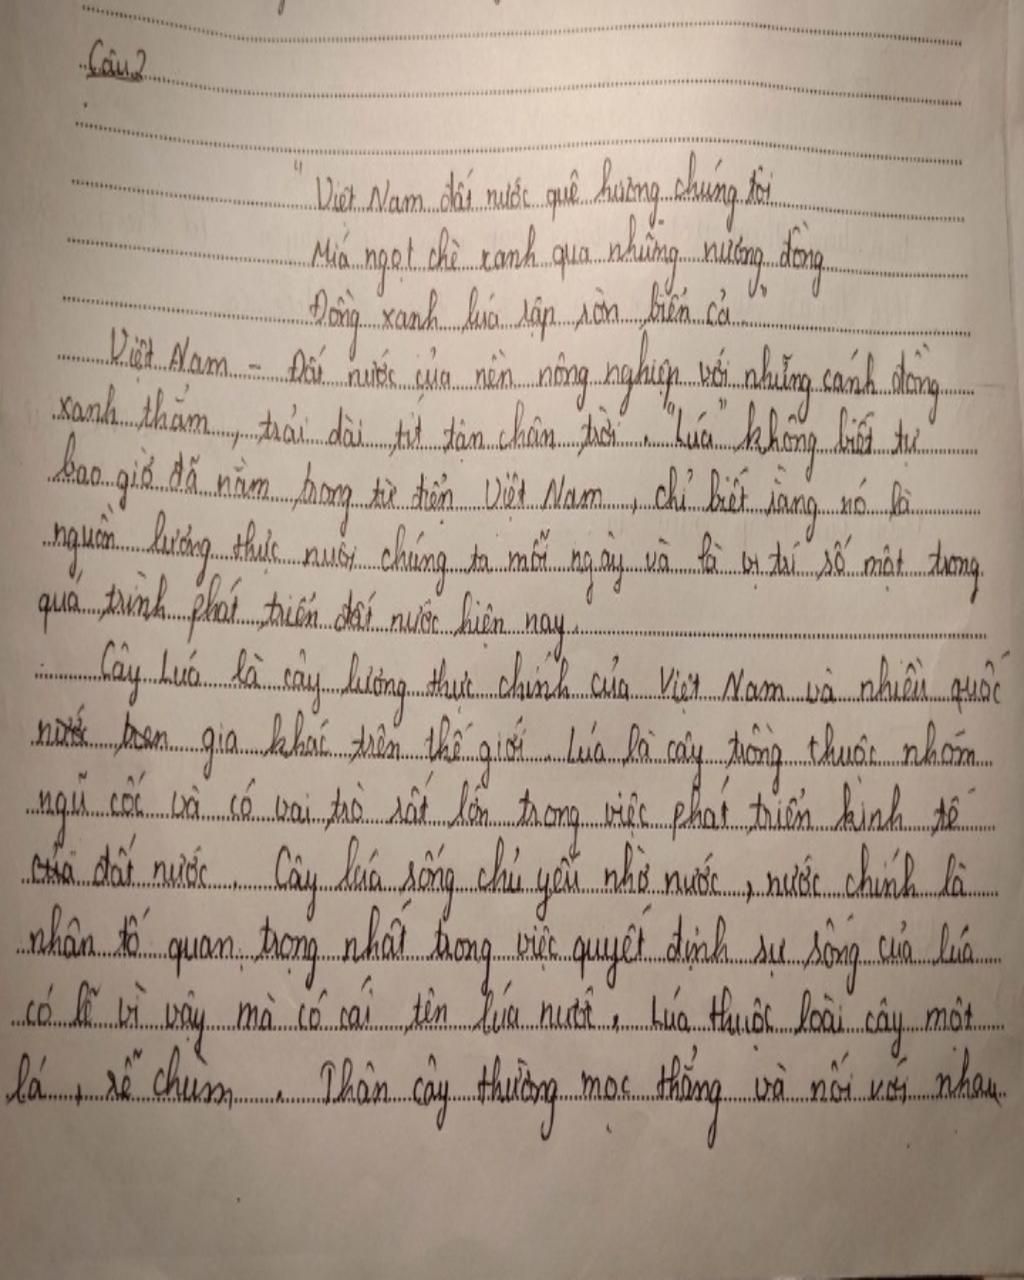 Câu 2
" Việt Nam đất nước quê hương chúng tôi
Mía ngọt chè xanh qua những nương đồng
Đồng xanh lúa rập rờn biển cả "
Việt Nam - Đất nước của nền nông nghiệp với những cánh đồng
xanh thắm, trải dài tít tận chân trời. "Lúa" không biết tự
bao giờ đã nằm trong từ điển Việt Nam, chỉ biết rằng nó là
nguồn lương thực nuôi chúng ta mỗi ngày và là vị trí số một trong
quá trình phát triển đất nước hiện nay.
Cây Lúa là cây lương thực chính của Việt Nam và nhiều quốc
gia khác trên thế giới. Lúa là cây trồng thuộc nhóm
ngũ cốc và có vai trò rất lớn trong việc phát triển kinh tế
của đất nước. Cây lúa sống chủ yếu nhờ nước, nước chính là
nhân tố quan trọng nhất trong việc quyết định sự sống của lúa
có lẽ vì vậy mà có cái tên lúa nước. Lúa thuộc loài cây một
lá, rễ chùm. Thân cây thường mọc thẳng và nối với nhau